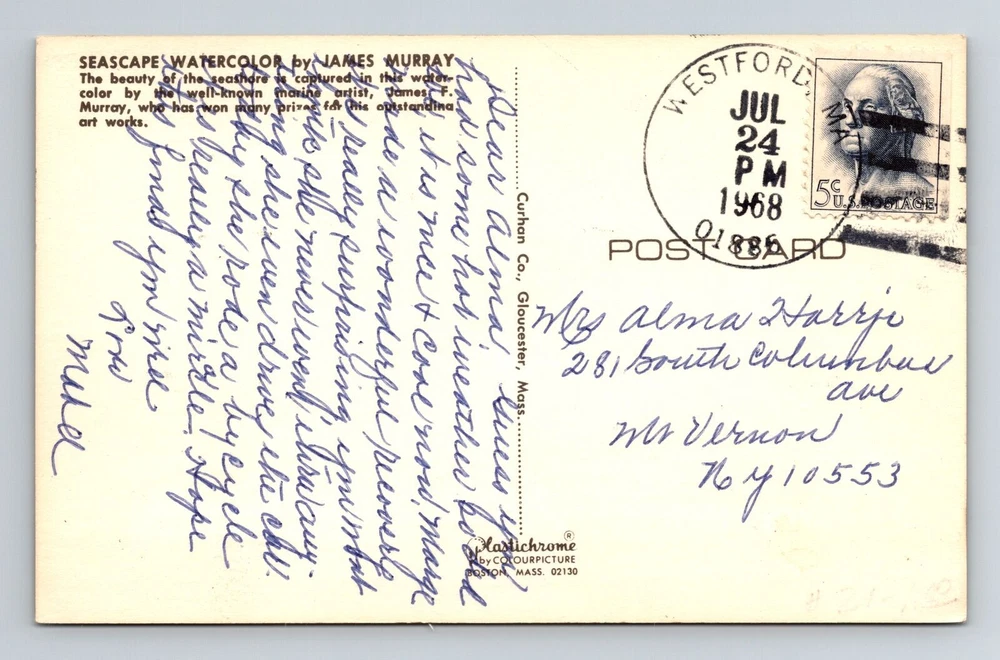 SEASCAPE WATERCOLOR by JAMES MURRAY
The beauty of the seashore is captured in this water-
color by the well-known marine artist, James F.
Murray, who has won many prizes for his outstanding
art works.
Dear Alma, Guess you
had some hot weather too and
it is nice & cool now. Marge
made a wonderful recovery
really surprising, if you want
she never went away.
she even drives the car.
she rode a bycycle
really a miracle! Hope
this finds you fine
Love
Mabel
Curhan Co., Gloucester, Mass.
Plastichrome ®
by COLOURPICTURE
BOSTON, MASS. 02130
WESTFORD, MA
JUL
24
PM
1968
01886
5¢
U.S. POSTAGE
POST CARD
Mrs Alma
281 South Columbus
ave
Mt Vernon
N y 10553